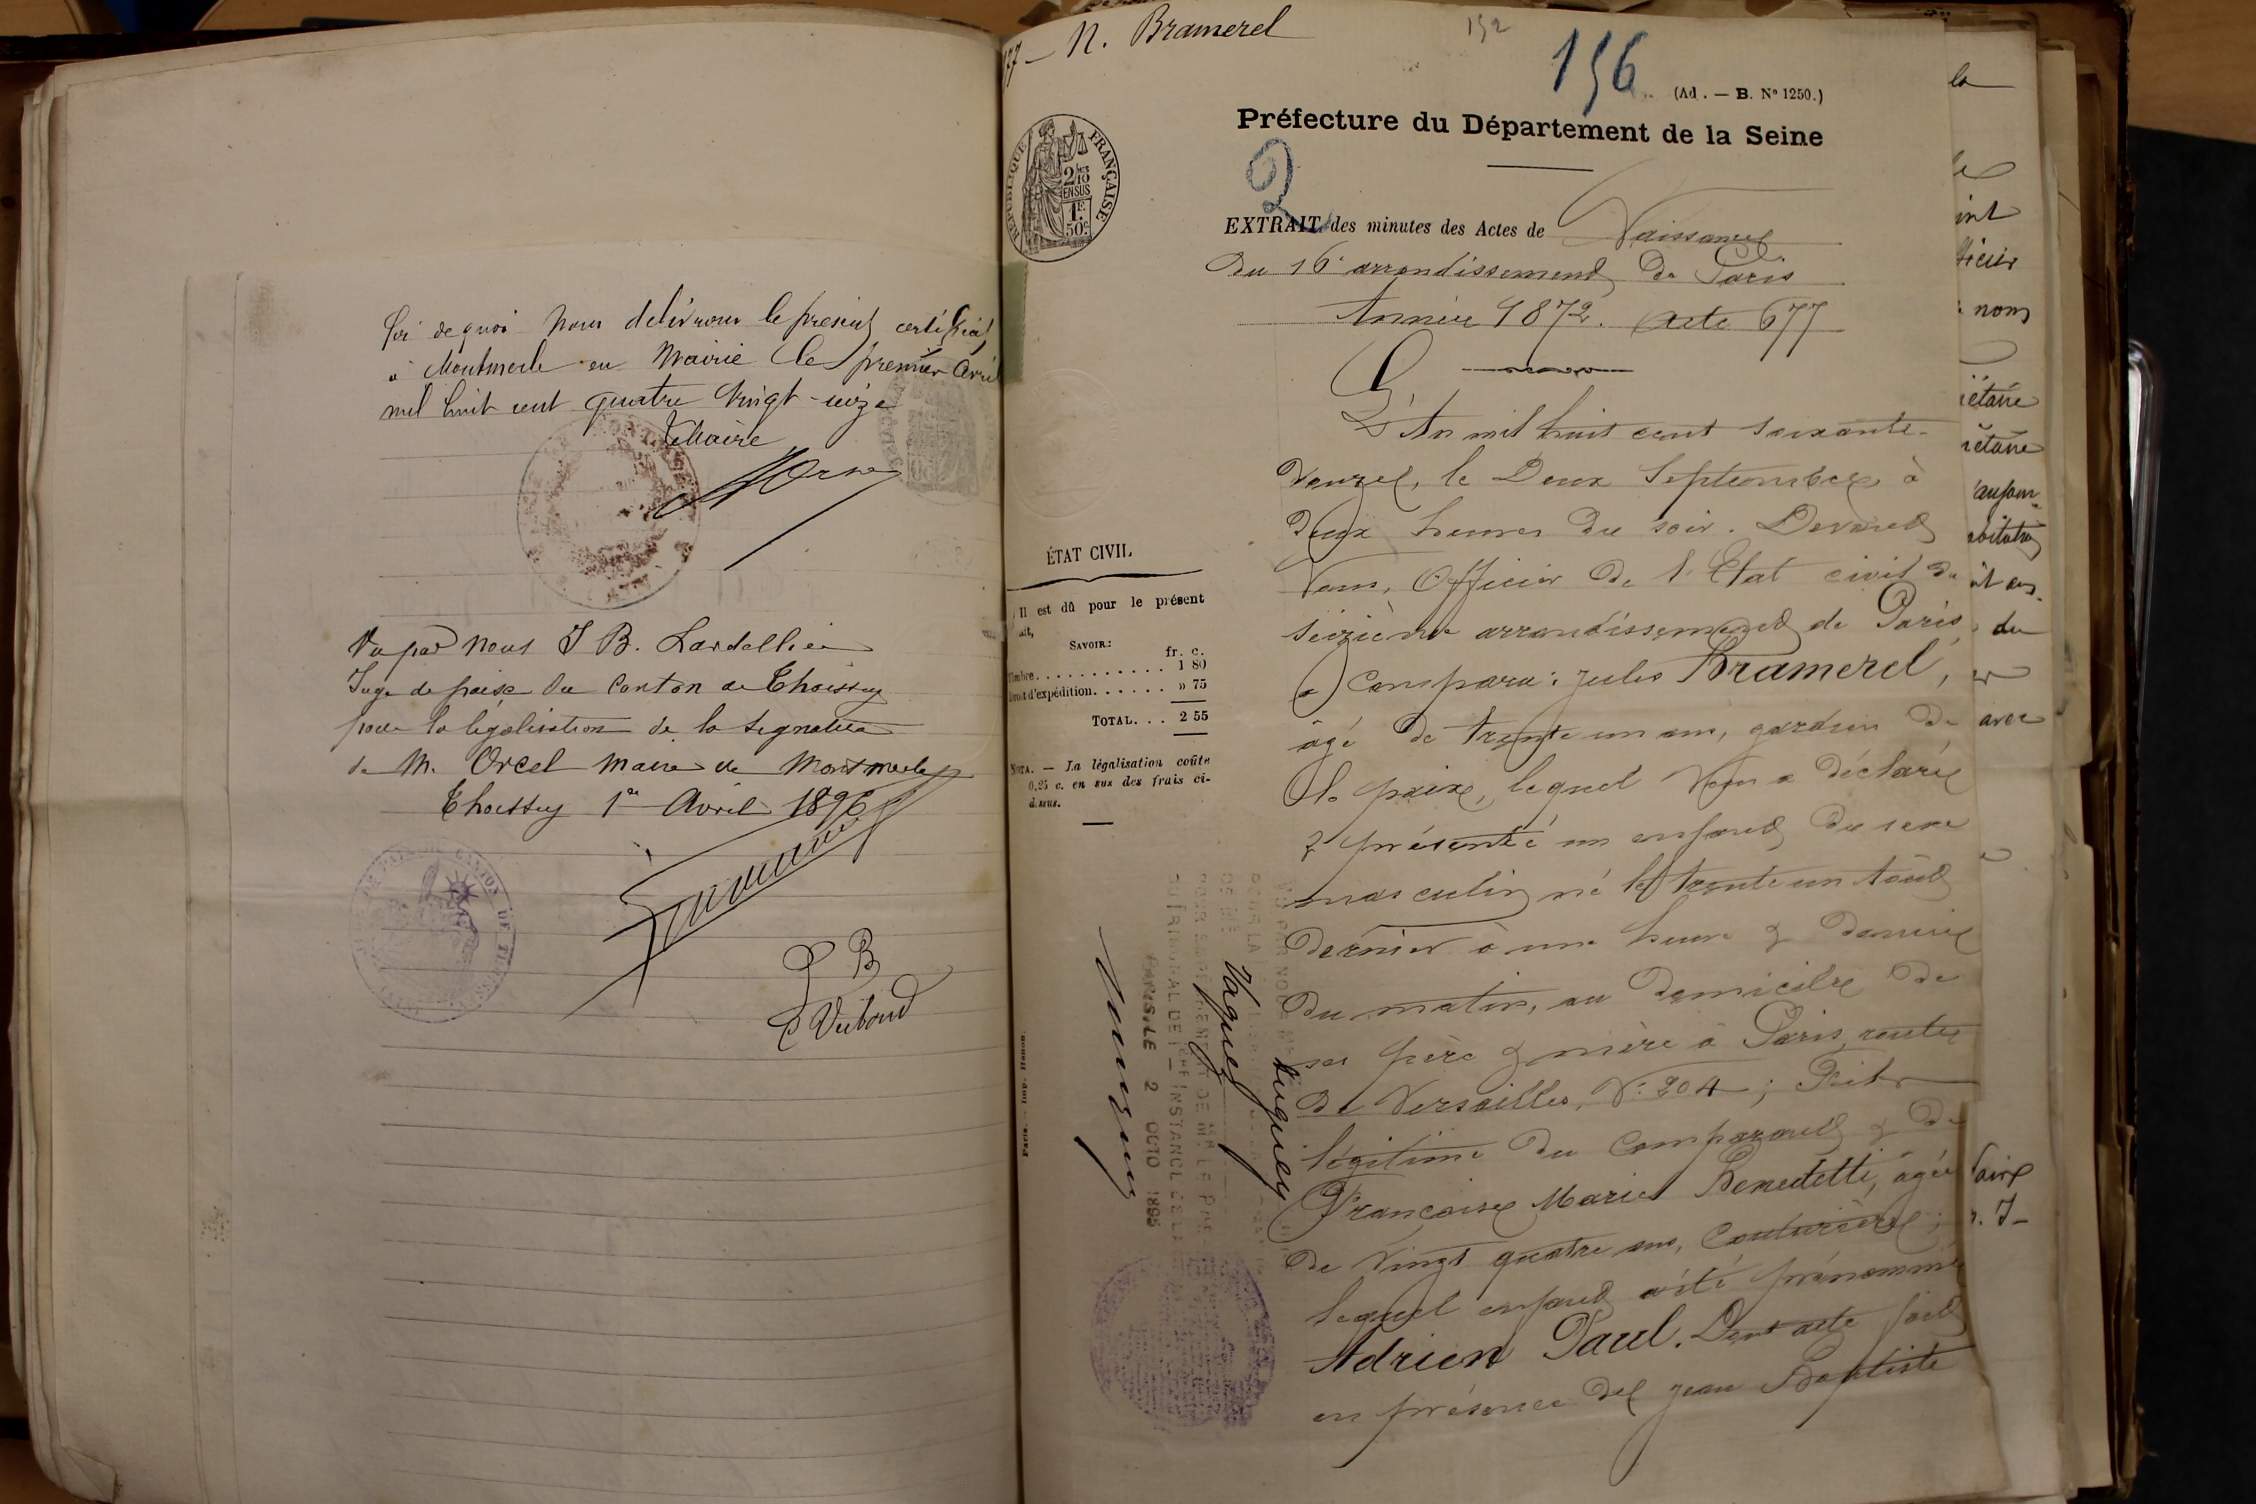 foi de quoi nous délivrons le présent certificat
à Montmerle en Mairie le premier Avril
mil huit cent quatre vingt-seize
Le Maire
Vu par nous J B. Lardellier
Juge de paix du Canton de Thoissey
pour la légalisation de la signature
de M. Orcel maire de Montmerle
Thoissey 1er Avril 1896
P B
77 — N. Bramerel
152
156
(Ad. — B. No 1250.)
Préfecture du Département de la Seine
2
RÉPUBLIQUE FRANÇAISE
2/10 EN SUS
1F 50c
EXTRAIT des minutes des Actes de Naissance
du 16e arrondissement de Paris
Année 1872. Acte 677
L'An mil huit cent soixante-
douze, le Deux Septembre à
deux heures du soir. Devant
Nous, Officier de l'Etat civil du
seizième arrondissement de Paris,
a Comparu: Jules Bramerel,
âgé de trente un ans, gardien de
la paix, lequel Nous a déclaré
& présenté un enfant du sexe
masculin né le trente un Août
dernier à une heure & demie
du matin, au domicile de
ses père & mère à Paris, route
de Versailles, No 204; Fils
légitime du Comparant & de
Françoise Marie Benedetti, âgée
de vingt quatre ans, Couturière;
lequel enfant a été prénommé
Adrien Paul. Dont acte fait
en présence de Jean Baptiste
ÉTAT CIVIL
Il est dû pour le présent
SAVOIR:
fr. c.
Timbre . . . . . . . . . . . 1 80
Droit d'expédition. . . . . . » 75
TOTAL. . . 2 55
NOTA. — La légalisation coûte
0,25 c. en sus des frais ci-
dessus.
Paris. — Imp.
PARIS, LE 2 OCTO 1895
la
nom
du
avec